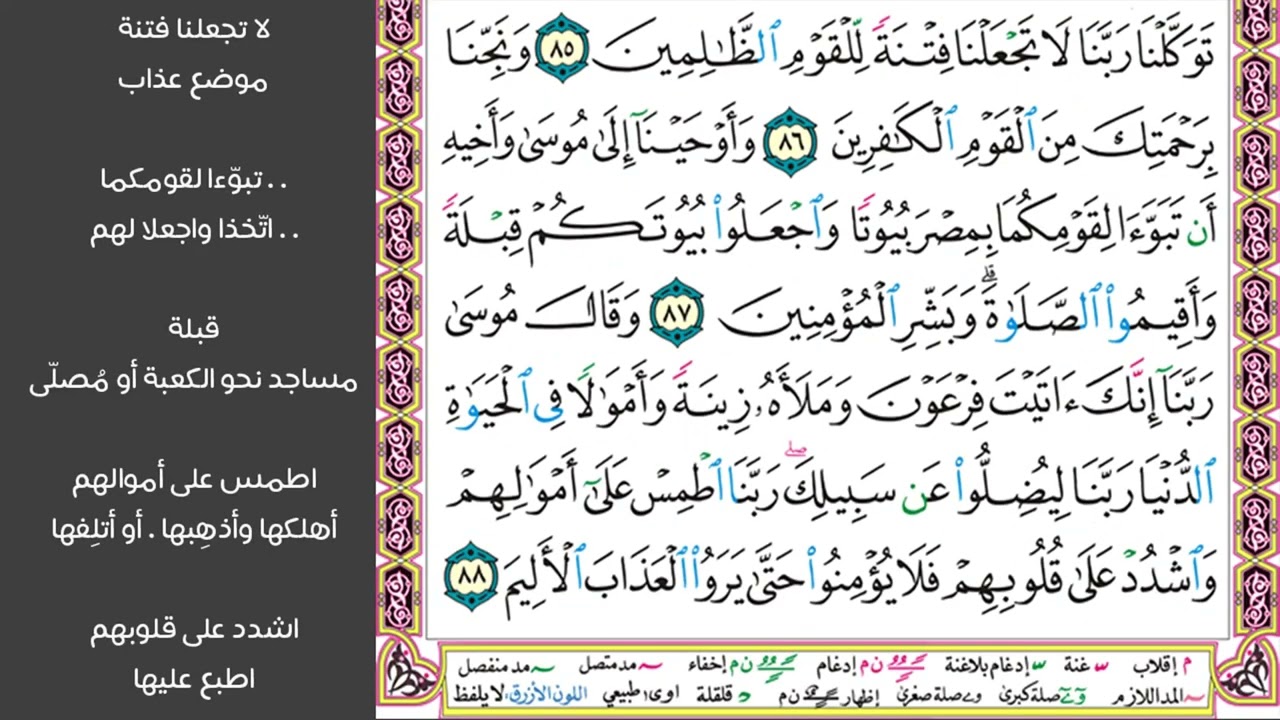 تَوَكَّلْنَا رَبَّنَا لَا تَجْعَلْنَا فِتْنَةً لِّلْقَوْمِ ٱلظَّـٰلِمِينَ ٨٥ وَنَجِّنَا
بِرَحْمَتِكَ مِنَ ٱلْقَوْمِ ٱلْكَـٰفِرِينَ ٨٦ وَأَوْحَيْنَآ إِلَىٰ مُوسَىٰ وَأَخِيهِ
أَن تَبَوَّءَا لِقَوْمِكُمَا بِمِصْرَ بُيُوتًا وَٱجْعَلُوا۟ بُيُوتَكُمْ قِبْلَةً
وَأَقِيمُوا۟ ٱلصَّلَوٰةَ ۗ وَبَشِّرِ ٱلْمُؤْمِنِينَ ٨٧ وَقَالَ مُوسَىٰ
رَبَّنَآ إِنَّكَ ءَاتَيْتَ فِرْعَوْنَ وَمَلَأَهُۥ زِينَةً وَأَمْوَٰلًا فِى ٱلْحَيَوٰةِ
ٱلدُّنْيَا رَبَّنَا لِيُضِلُّوا۟ عَن سَبِيلِكَ ۖ رَبَّنَا ٱطْمِسْ عَلَىٰٓ أَمْوَٰلِهِمْ
وَٱشْدُدْ عَلَىٰ قُلُوبِهِمْ فَلَا يُؤْمِنُوا۟ حَتَّىٰ يَرَوُا۟ ٱلْعَذَابَ ٱلْأَلِيمَ ٨٨
م إقلاب س غنة س إدغام بلاغنة ن م إدغام ن م إخفاء مد متصل مد منفصل
المد اللازم صلة كبرى و ے صلة صغرى إظهار ن م د قلقلة اوى طبيعي اللون الأزرق: لا يلفظ
لا تجعلنا فتنة
موضع عذاب
. . تبوّءا لقومكما
. . اتّخذا واجعلا لهم
قبلة
مساجد نحو الكعبة أو مُصلّى
اطمس على أموالهم
أهلكها وأذهِبها . أو أتلِفها
اشدد على قلوبهم
اطبع عليها